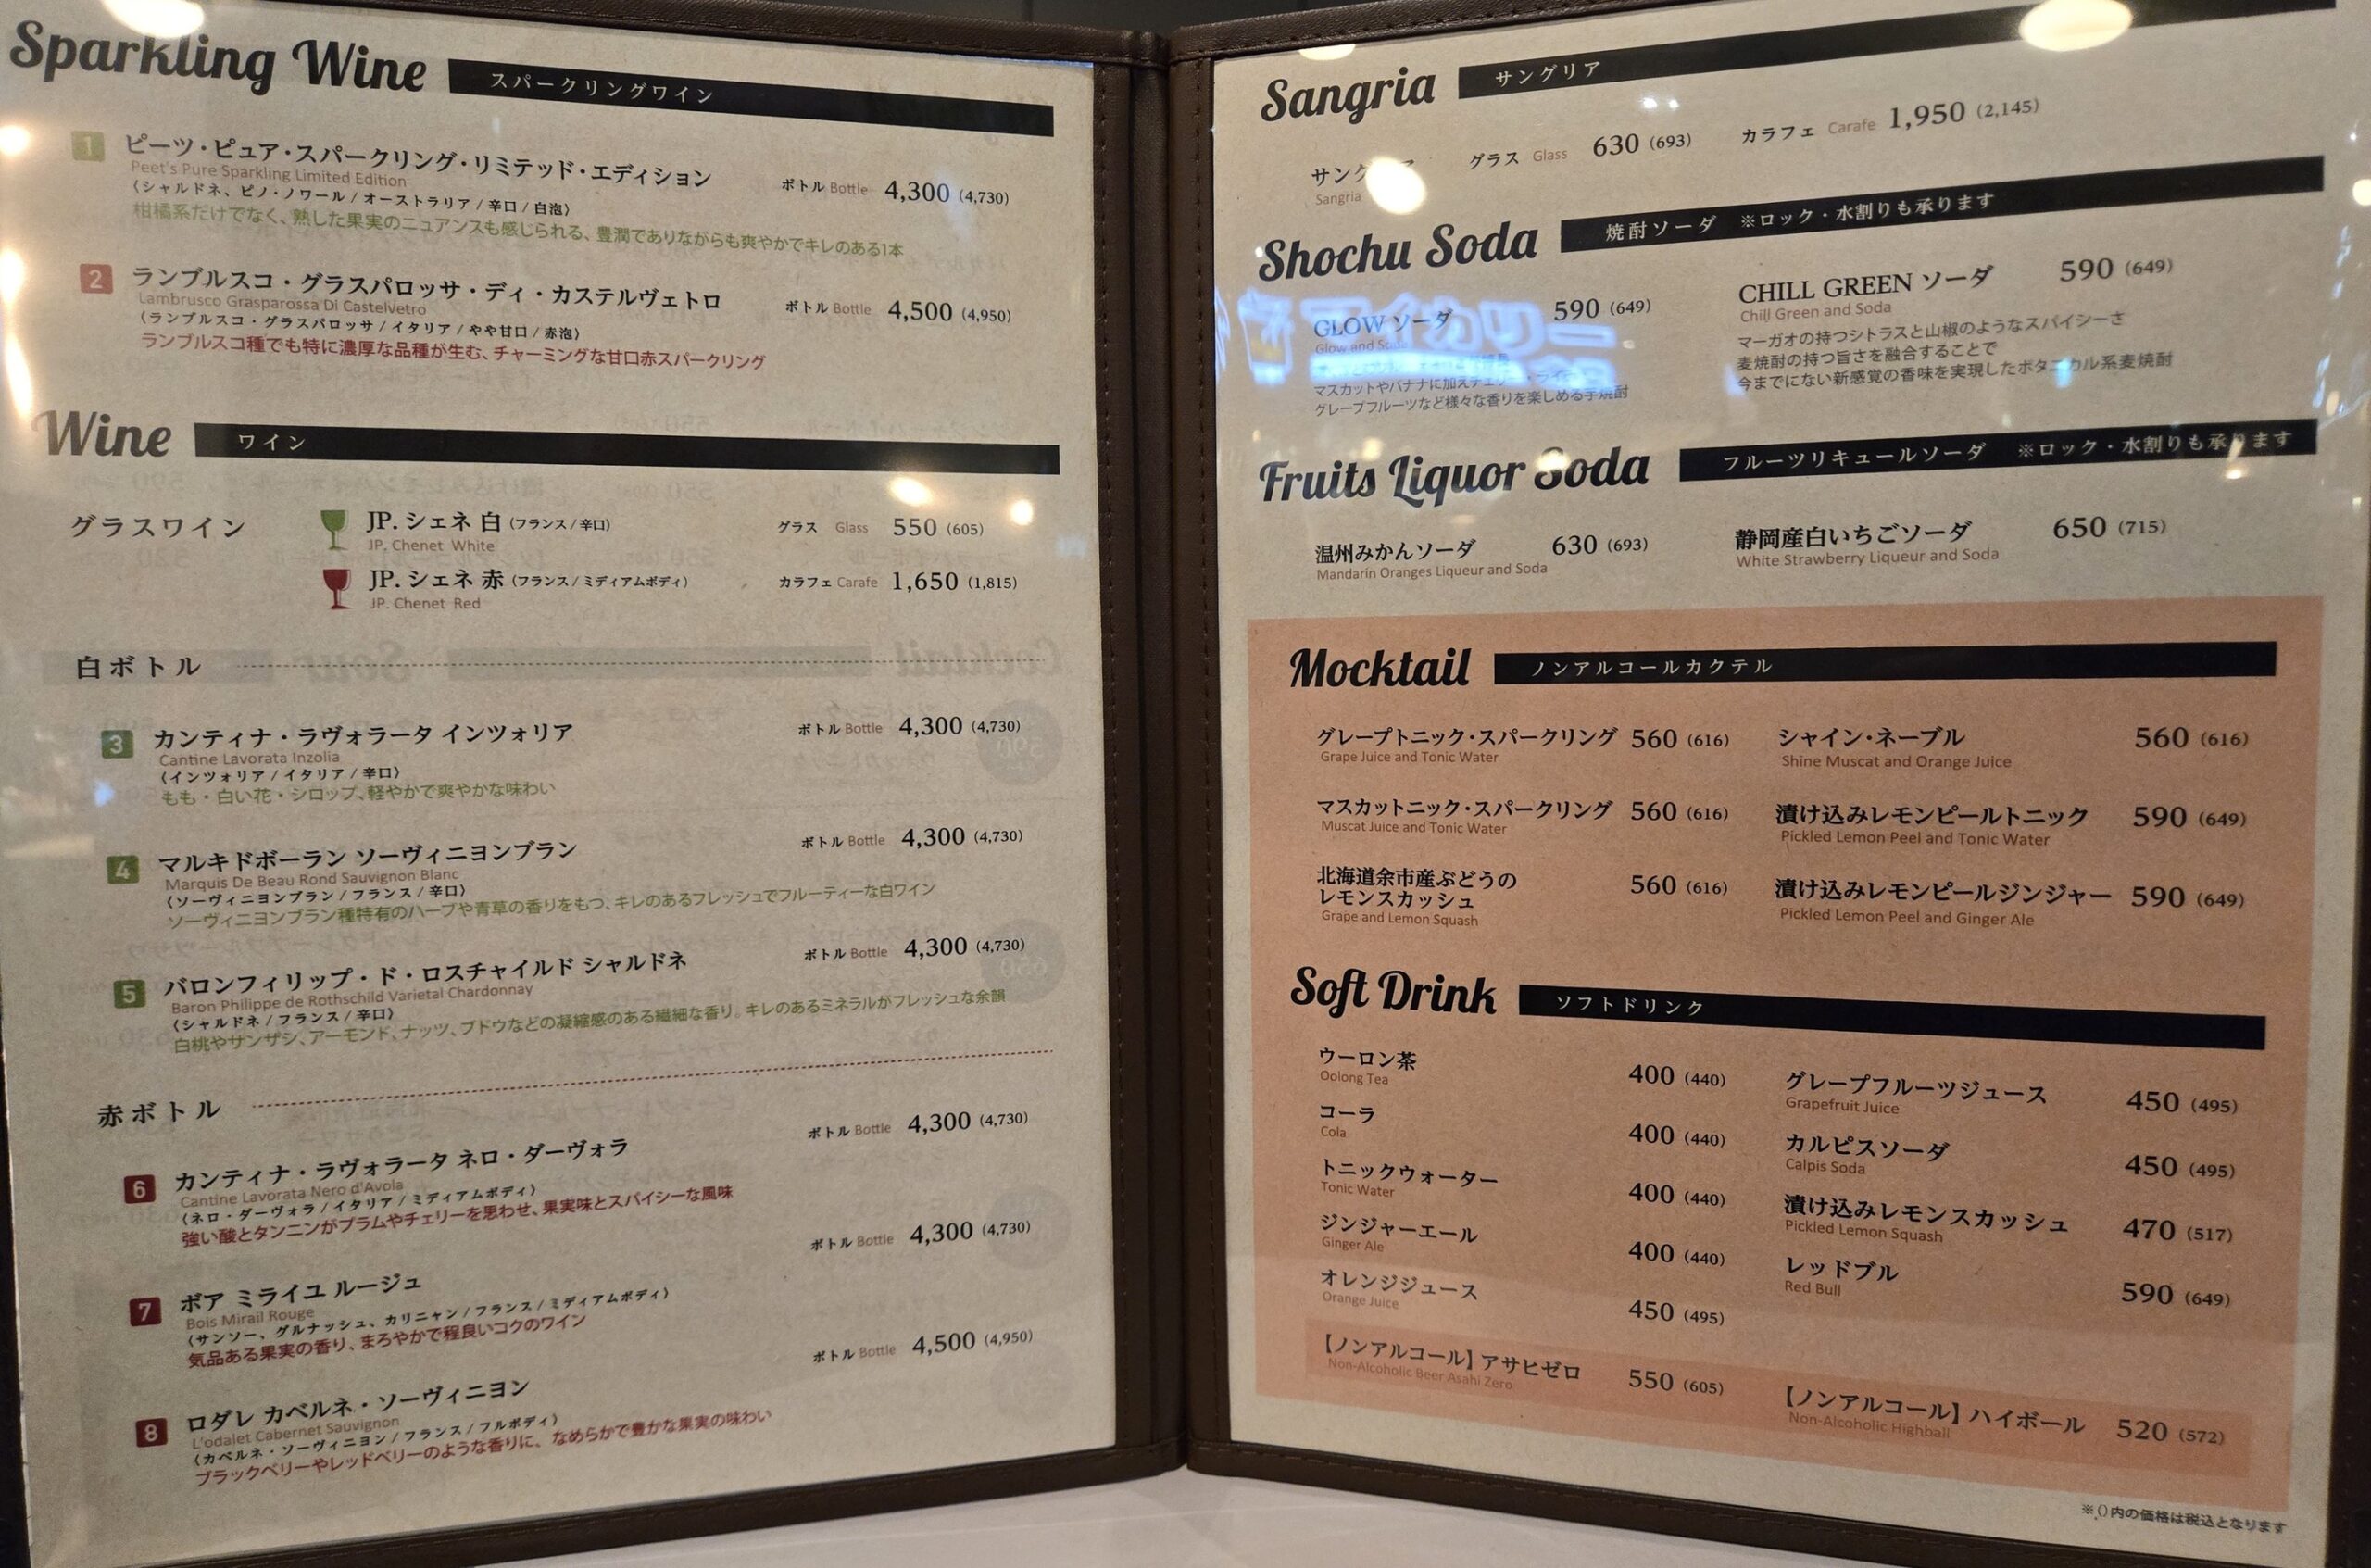 Sparkling Wine スパークリングワイン
1 ピーツ・ピュア・スパークリング・リミテッド・エディション ボトル Bottle 4,300 (4,730)
Peet's Pure Sparkling Limited Edition
(シャルドネ、ピノ・ノワール / オーストラリア / 辛口 / 白泡)
柑橘系だけでなく、熟した果実のニュアンスも感じられる、豊潤でありながらも爽やかでキレのある1本
2 ランブルスコ・グラスパロッサ・ディ・カステルヴェトロ ボトル Bottle 4,500 (4,950)
Lambrusco Grasparossa Di Castelvetro
(ランブルスコ・グラスパロッサ / イタリア / やや甘口 / 赤泡)
ランブルスコ種でも特に濃厚な品種が生む、チャーミングな甘口赤スパークリング
Wine ワイン
グラスワイン JP. シェネ 白 (フランス / 辛口) グラス Glass 550 (605)
JP. Chenet White
JP. シェネ 赤 (フランス / ミディアムボディ) カラフェ Carafe 1,650 (1,815)
JP. Chenet Red
白ボトル
3 カンティナ・ラヴォラータ インツォリア ボトル Bottle 4,300 (4,730)
Cantine Lavorata Inzolia
(インツォリア / イタリア / 辛口)
もも・白い花・シロップ、軽やかで爽やかな味わい
4 マルキドボーラン ソーヴィニヨンブラン ボトル Bottle 4,300 (4,730)
Marquis De Beau Rond Sauvignon Blanc
(ソーヴィニヨンブラン / フランス / 辛口)
ソーヴィニヨンブラン種特有のハーブや青草の香りをもつ、キレのあるフレッシュでフルーティーな白ワイン
5 バロンフィリップ・ド・ロスチャイルド シャルドネ ボトル Bottle 4,300 (4,730)
Baron Philippe de Rothschild Varietal Chardonnay
(シャルドネ / フランス / 辛口)
白桃やサンザシ、アーモンド、ナッツ、ブドウなどの凝縮感のある繊細な香り。キレのあるミネラルがフレッシュな余韻
赤ボトル
6 カンティナ・ラヴォラータ ネロ・ダーヴォラ ボトル Bottle 4,300 (4,730)
Cantine Lavorata Nero d'Avola
(ネロ・ダーヴォラ / イタリア / ミディアムボディ)
強い酸とタンニンがプラムやチェリーを思わせ、果実味とスパイシーな風味
7 ボア ミライユ ルージュ ボトル Bottle 4,300 (4,730)
Bois Mirail Rouge
(サンソー、グルナッシュ、カリニャン / フランス / ミディアムボディ)
気品ある果実の香り、まろやかで程良いコクのワイン
8 ロダレ カベルネ・ソーヴィニヨン ボトル Bottle 4,500 (4,950)
L'odalet Cabernet Sauvignon
(カベルネ・ソーヴィニヨン / フランス / フルボディ)
ブラックベリーやレッドベリーのような香りに、なめらかで豊かな果実の味わい
Sangria サングリア
グラス Glass 630 (693) カラフェ Carafe 1,950 (2,145)
Sangria
Shochu Soda 焼酎ソーダ ※ロック・水割りも承ります
GLOW ソーダ 590 (649)
Glow and Soda
マスカットやバナナに加え
グレープフルーツなど様々な香りを楽しめる芋焼酎
CHILL GREEN ソーダ 590 (649)
Chill Green and Soda
マーガオの持つシトラスと山椒のようなスパイシーさ
麦焼酎の持つ旨さを融合することで
今までにない新感覚の香味を実現したボタニカル系麦焼酎
Fruits Liquor Soda フルーツリキュールソーダ ※ロック・水割りも承ります
温州みかんソーダ 630 (693)
Mandarin Oranges Liqueur and Soda
静岡産白いちごソーダ 650 (715)
White Strawberry Liqueur and Soda
Mocktail ノンアルコールカクテル
グレープトニック・スパークリング 560 (616)
Grape Juice and Tonic Water
マスカットニック・スパークリング 560 (616)
Muscat Juice and Tonic Water
北海道余市産ぶどうの
レモンスカッシュ 560 (616)
Grape and Lemon Squash
シャイン・ネーブル 560 (616)
Shine Muscat and Orange Juice
漬け込みレモンピールトニック 590 (649)
Pickled Lemon Peel and Tonic Water
漬け込みレモンピールジンジャー 590 (649)
Pickled Lemon Peel and Ginger Ale
Soft Drink ソフトドリンク
ウーロン茶 400 (440)
Oolong Tea
コーラ 400 (440)
Cola
トニックウォーター 400 (440)
Tonic Water
ジンジャーエール 400 (440)
Ginger Ale
オレンジジュース 450 (495)
Orange Juice
【ノンアルコール】アサヒゼロ 550 (605)
Non-Alcoholic Beer Asahi Zero
グレープフルーツジュース 450 (495)
Grapefruit Juice
カルピスソーダ 450 (495)
Calpis Soda
漬け込みレモンスカッシュ 470 (517)
Pickled Lemon Squash
レッドブル 590 (649)
Red Bull
【ノンアルコール】ハイボール 520 (572)
Non-Alcoholic Highball
※()内の価格は税込となります